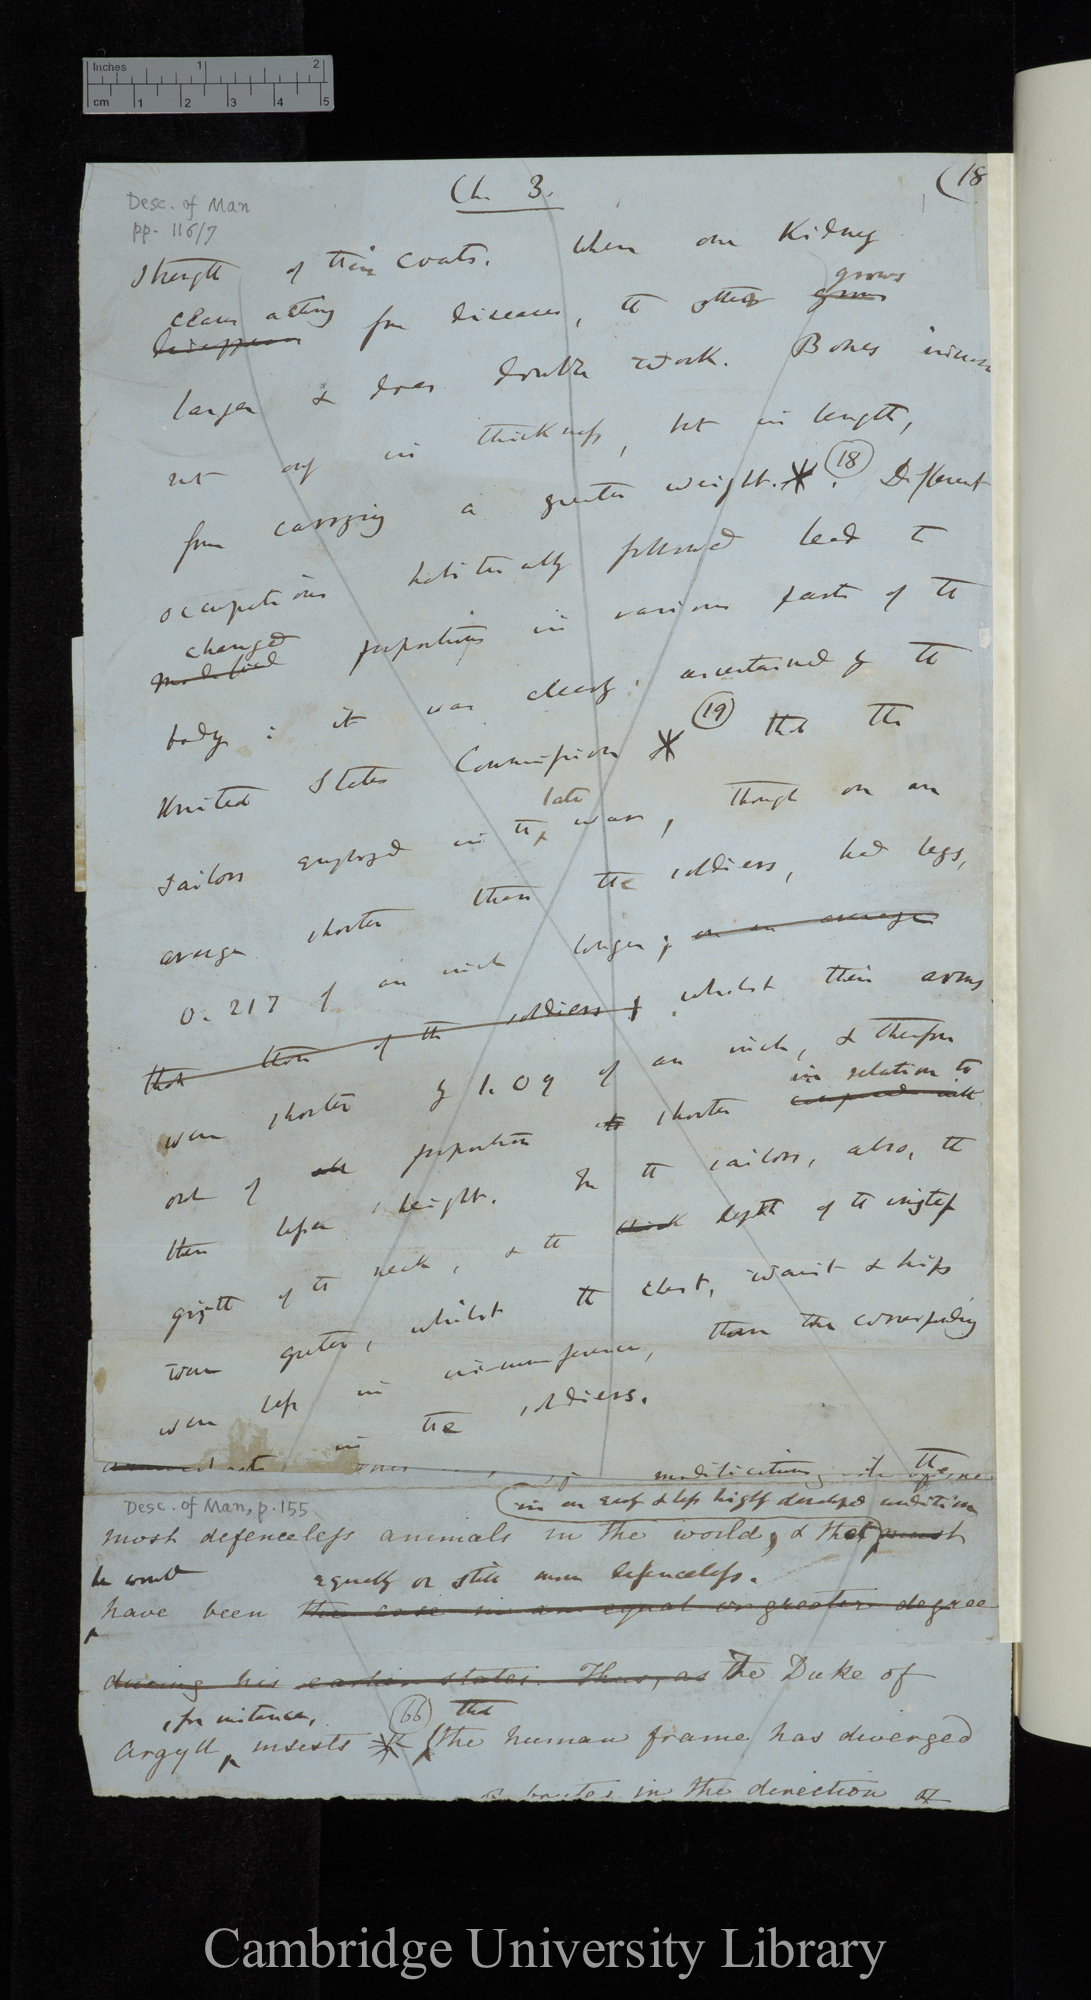 Inches 1 2
cm 1 2 3 4 5
Ch. 3.
(18
Desc. of Man
pp. 116/7
strength of their coats. When one Kidney
grows
ceases acting for disease, the other grows
disappears
larger & does double work. Bones increase
not only in thickness, but in length,
from carrying a greater weight. * (18) Different
occupations habitually followed lead to
changed
modified proportions in various parts of the
body: it was clearly ascertained by the
United States Commission * (19) that the
late
sailors employed in the war, though on an
average shorter than the soldiers, had legs,
0.217 of an inch longer; on an average
than those of the soldiers; whilst their arms
were shorter by 1.09 of an inch, & therefore
in relation to
out of all proportion shorter compared with
their lesser height. In the sailors, also, the
girth of the neck, & the depth of the instep
were greater, whilst the chest, waist & hips
were less in circumference, than the corresponding
in the soldiers.
modifications, the
Desc. of Man, p. 155
(in an early & less highly developed condition
most defenceless animals in the world, & that must
he would equally or still more defenceless.
have been the case in an equal or greater degree
during his earlier states. Thus, as The Duke of
, for instance, (66) that
Argyll insists * the human frame has diverged
brutes in the direction of
Cambridge University Library